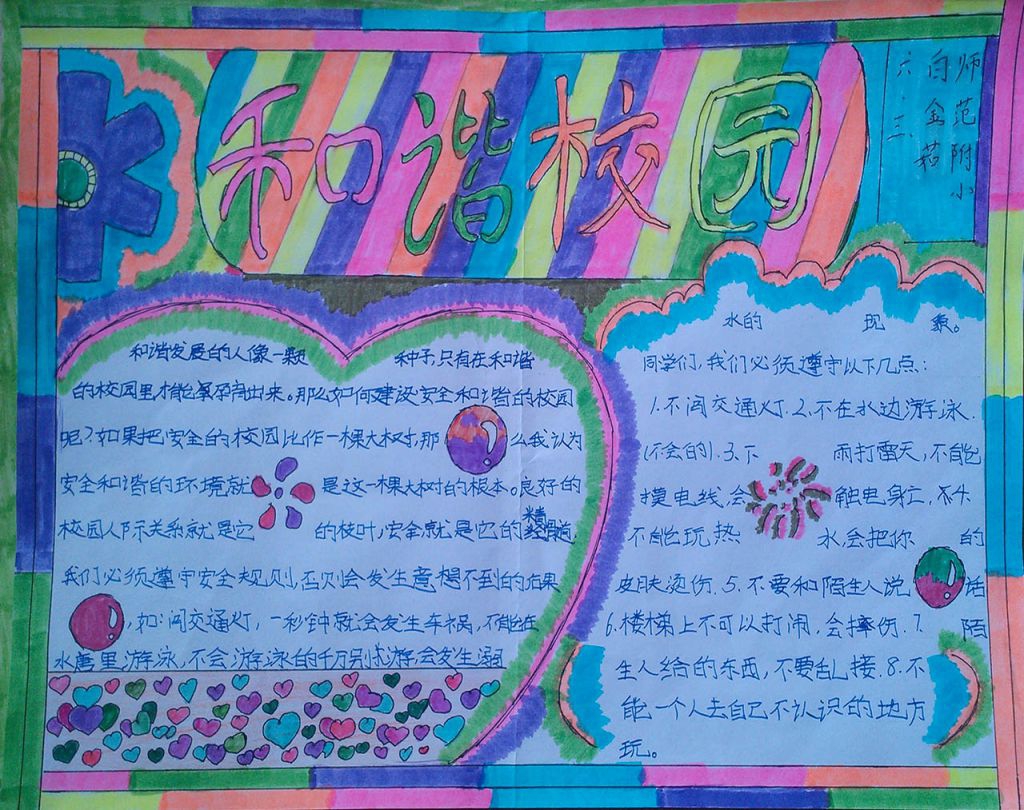 和谐校园
师范附小
白金
六.三.
和谐发展的人像一颗 种子,只有在和谐
的校园里才能够孕育出来。那么如何建设安全和谐的校园
呢?如果把安全的校园比作一棵大树,那 么我认为
安全和谐的环境就 是这一棵大树的根本。良好的
校园人际关系就是它 的枝叶,安全就是它的
我们必须遵守安全规则,否则会发生意想不到的后果
,如:闯交通灯,一秒钟就会发生车祸,不能在
水库里游泳,不会游泳的千万别游,会发生溺
水的 现 象。
同学们,我们必须遵守以下几点:
1.不闯交通灯.2.不在水边游泳.
(不会的).3.下 雨打雷天,不能
摸电线,会 触电身亡,不4.
不能玩热 水,会把你 的
皮肤烫伤.5.不要和陌生人说 话
6.楼梯上不可以打闹,会摔伤.7. 陌
生人给的东西,不要乱接.8.不
能一个人去自己不认识的地方
玩。